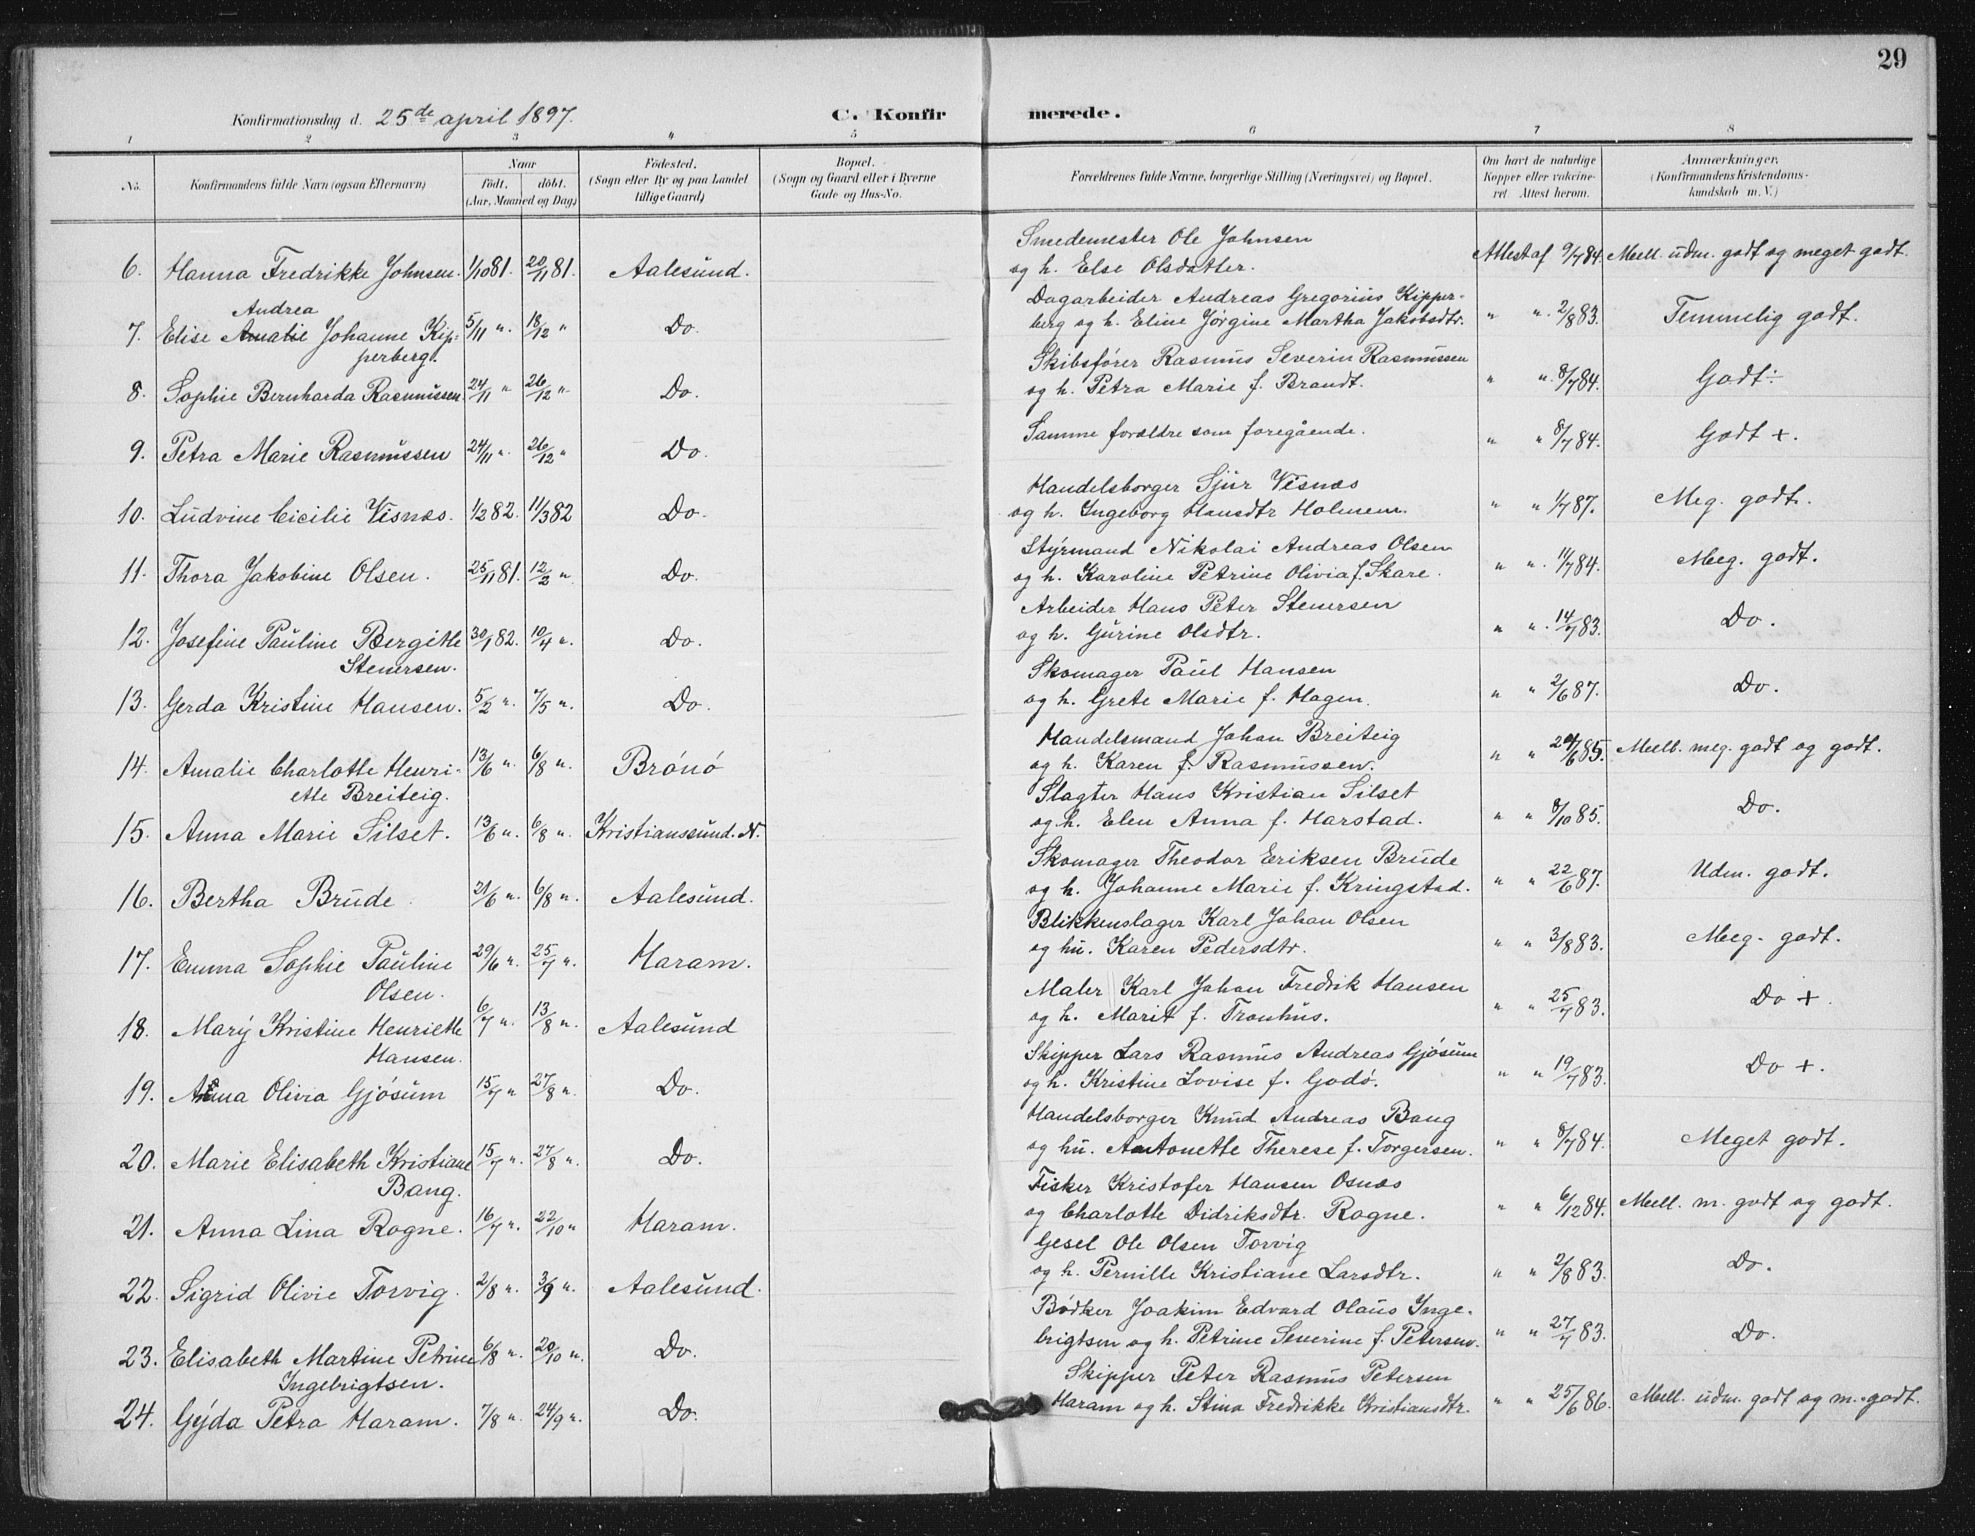 29
Konfirmationsdag d. 25de april 1897.
C. Konfirmerede.
1 2 3 4 5 6 7 8
No.
Konfirmandens fulde Navn (ogsaa Efternavn)
Naar
födt. döbt.
(Aar, Maaned og Dag)
Födested.
(Sogn eller By og paa Landet
tillige Gaard)
Bopæl.
(Sogn og Gaard eller i Byerne
Gade og Hus-No.
Forældrenes fulde Navne, borgerlige Stilling (Næringsvei) og Bopæl.
Om havt de naturlige
Kopper eller vakcine-
ret Attest herom.
Anmærkninger.
(Konfirmandens Kristendoms-
kundskab m. V.)
6. Hanna Fredrikke Johnsen. 1/10 81. 20/11 81. Aalesund.
Smedemester Ole Johnsen
og h. Else Olsdatter.
Attest af 9/7 84. Mell. udm. godt og meget godt.
Andrea
7. Elise Amalie Johanne Kip-
perberg. 5/11 " 18/12 " Do.
Dagarbeider Andreas Gregorius Kipper-
berg og h. Eline Jørgine Martha Jakobsdtr.
" " 2/8 83. Temmelig godt.
8. Sophie Bernharda Rasmussen. 24/11 " 26/12 " Do.
Skibsfører Rasmus Severin Rasmussen
og h. Petra Marie f. Brandt.
" " 8/7 84. Godt ÷
9. Petra Marie Rasmussen 24/11 " 26/12 " Do.
Samme forældre som foregående.
" " 8/7 84. Godt +.
10. Ludvine Cicilie Visnæs. 1/2 82. 11/3 82 Do.
Handelsborger Sjur Visnæs
og h. Ingeborg Hansdtr Holmem.
" " 1/7 87. Meg. godt.
11. Thora Jakobine Olsen. 25/11 81. 12/2 " Do.
Styrmand Nikolai Andreas Olsen
og h. Karoline Petrine Olivia f. Skare.
" " 11/7 84. Meg. godt.
12. Josefine Pauline Bergitte
Stenersen. 30/1 82. 10/4 " Do.
Arbeider Hans Peter Stenersen
og h. Gurine Olsdtr.
" " 14/7 83. Do.
13. Gerda Kristine Hansen. 5/2 " 7/5 " Do.
Skomager Paul Hansen
og h. Grete Marie f. Hagen.
" " 2/6 87. Do.
14. Amalie Charlotte Henri-
ette Breiteig. 13/6 " 6/8 " Brönö
Handelsmand Johan Breiteig
og h. Karen f. Rasmussen.
" " /6 85. Mell. meg. godt og godt.
15. Anna Marie Silset. 13/6 " 6/8 " Kristianssund. N.
Slagter Hans Kristian Silset
og h. Elen Anna f. Harstad.
" " 8/10 85. Do.
16. Bertha Brude 21/6 " 6/8 " Aalesund.
Skomager Theodor Eriksen Brude
og h. Johanne Marie f. Kringstad.
" " 22/6 87. Udm. godt.
17. Emma Sophie Pauline
Olsen. 29/6 " 25/7 " Haram.
Blikkenslager Karl Johan Olsen
og hu. Karen Pedersdtr.
" " 3/8 83. Meg. godt.
18. Mary Kristine Henriette
Hansen. 6/7 " 13/8 " Aalesund
Maler Karl Johan Fredrik Hansen
og h. Marit f. Tronhus.
" " 25/7 83. Do +.
19. Anna Olivia Gjøsum 15/7 " 27/8 " Do.
Skipper Lars Rasmus Andreas Gjøsum
og h. Kristine Lovise f. Godø.
" " 19/7 83. Do +.
20. Marie Elisabeth Kristiane
Bang. 15/7 " 27/8 " Do.
Handelsborger Knud Andreas Bang
og hu. Antonette Therese f. Torgersen.
" " 8/7 84. Meget godt.
21. Anna Lina Rogne. 16/7 " 22/10 " Haram.
Fisker Kristofer Hansen Osnæs
og Charlotte Didriksdtr. Rogne.
" " 6/12 84. Mell. m. godt og godt.
22. Sigrid Olivie Torvig. 2/8 " 3/9 " Aalesund.
Gesel Ole Olsen Torvig
og h. Pernille Kristiane Larsdtr.
" " 2/8 83. Do.
23. Elisabeth Martine Petrine
Ingebrigtsen. 6/8 " 20/10 " Do.
Bödker Joakim Edvard Olaus Inge-
brigtsen og h. Petrine Severine f. Petersen.
" " 27/7 83. Do.
24. Gyda Petra Haram. 7/8 " 24/9 " Do.
Skipper Peter Rasmus Petersen
Haram og h. Stina Fredrikke Kristiansdtr.
" " 25/6 86. Mell. udm. godt og m. godt.